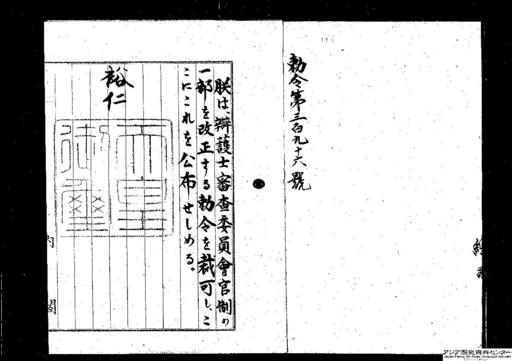 勅令第三百九十六號
朕は辯護士審査委員會官制の
一部を改正する勅令を裁可し、こ
こにこれを公布せしめる。
裕仁
天皇
御璽
内閣
アジア歴史資料センター